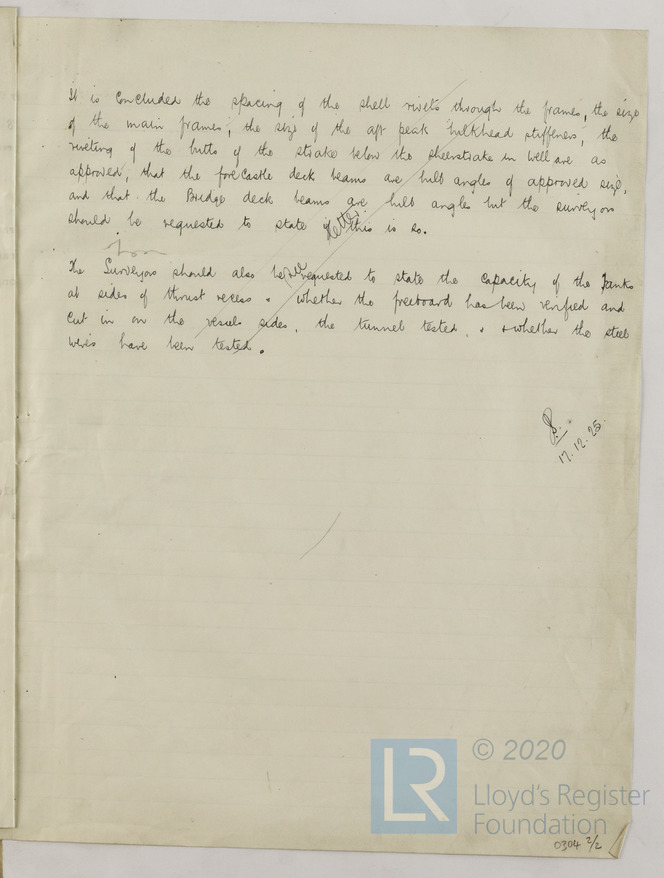 It is concluded the spacing of the shell rivets through the frames, the size
of the main frames, the size of the aft peak bulkhead stiffeners, the
riveting of the butts of the strake below the sheerstrake in well are as
approved, that the forecastle deck beams are bulb angles of approved size,
and that the Bridge deck beams are bulb angles but the surveyors
should be requested to state if this is so.
Letter
The Surveyors should also be requested to state the capacity of the Tanks
at sides of thrust recess & whether the freeboard has been verified and
cut in on the vessels sides, the tunnel tested, & whether the steel
wires have been tested.
17.12.25.
© 2020
LR
Lloyd's Register
Foundation
0304 2/2